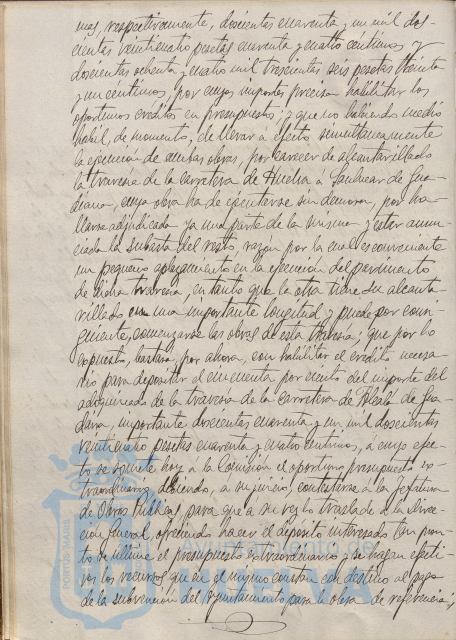 mas, respectivamente, doscientas cuarenta y un mil dos-
cientas veinticuatro pesetas cuarenta y cuatro centimos y
doscientas ochenta y cuatro mil trescientas seis pesetas treinta
y un centimos, por cuyos importes precisa habilitar los
oportunos creditos en presupuesto; y que no habiendo medio
habil, de momento, de llevar a efecto simultaneamente
la ejecución de ambas obras, por carecer de alcantarillado
la travesia de la carretera de Huelva a Sanlucar de Gua-
diana, cuya obra ha de ejecutarse sin demora, por ha-
llarse adjudicada ya una parte de la misma y estar anun-
ciada la subasta del resto, razón por la cual es conveniente
un pequeno aplazamiento en la ejecución del pavimento
de dicha travesia, en tanto que la otra tiene su alcanta-
rillado en una importante longitud y puede por consi-
guiente, comenzarse las obras de esta travesia; que por lo
expuesto, bastará, por ahora, con habilitar el credito necesa-
rio para depositar el cincuenta por ciento del importe del
adoquinado de la travesia de la carretera de Alcalá de Gua-
daira, importante doscientas cuarenta y un mil doscientas
veinticuatro pesetas cuarenta y cuatro centimos, á cuyo efec-
to se somete hoy a la Comisión el oportuno presupuesto ex-
traordinario, debiendo, a su juicio, contestarse a la Jefatura
de Obras Publicas, para que a su vez lo traslade a la Direc-
ción General, ofreciendo hacer el deposito interesado tan pron-
to se ultime el presupuesto extraordinario y se hagan efecti-
vos los recursos que en el mismo constan con destino al pago
de la subvención del Ayuntamiento para la obra de referencia;
PORTUS MARIS
HUELVA